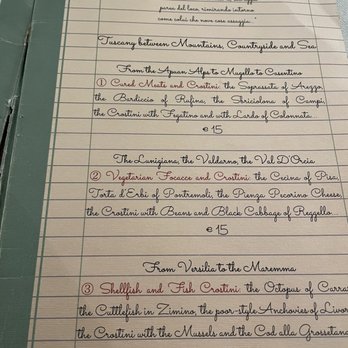 parea del loco, rimirando intorno
come colui che nove cose assaggia."
Tuscany between Mountains, Countryside and Sea
From the Apuan Alps to Mugello to Casentino
① Cured Meats and Crostini: the Soprassata of Arezzo,
the Bardiccio of Rufina, the Sbriciolona of Campi,
the Crostini with Fegatino and with Lardo of Colonnata...
€ 15
The Lunigiana, the Valdarno, the Val D'Orcia
② Vegetarian Focacce and Crostini: the Cecina of Pisa,
Torta d'Erbi of Pontremoli, the Pienza Pecorino Cheese,
the Crostini with Beans and Black Cabbage of Reggello...
€ 15
From Versilia to the Maremma
③ Shellfish and Fish Crostini: the Octopus of Carra
the Cuttlefish in Zimino, the poor-style Anchovies of Livor
the Crostini with the Mussels and the Cod alla Grossetana